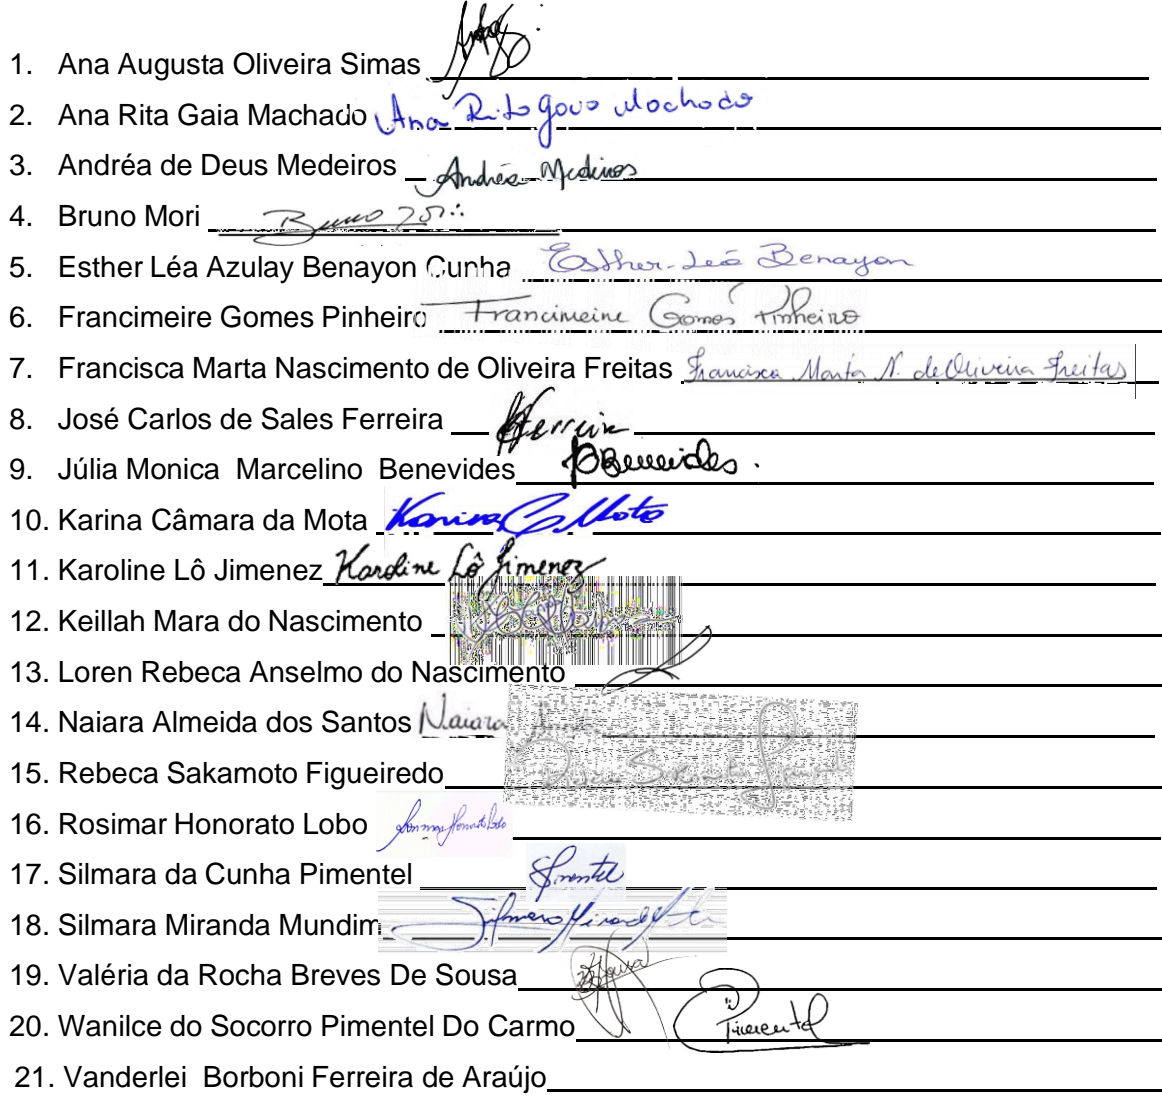 1. Ana Augusta Oliveira Simas
2. Ana Rita Gaia Machado Ana Rita Gaia Machado
3. Andréa de Deus Medeiros Andréa Medeiros
4. Bruno Mori Bruno
5. Esther Léa Azulay Benayon Cunha Esther Léa Benayon
6. Francimeire Gomes Pinheiro Francimeire Gomes Pinheiro
7. Francisca Marta Nascimento de Oliveira Freitas Francisca Marta N. de Oliveira Freitas
8. José Carlos de Sales Ferreira Ferreira
9. Júlia Monica Marcelino Benevides Benevides.
10. Karina Câmara da Mota Karina C Mota
11. Karoline Lô Jimenez Karoline Lô Jimenez
12. Keillah Mara do Nascimento
13. Loren Rebeca Anselmo do Nascimento
14. Naiara Almeida dos Santos Naiara
15. Rebeca Sakamoto Figueiredo
16. Rosimar Honorato Lobo
17. Silmara da Cunha Pimentel Pimentel
18. Silmara Miranda Mundim Silmara Miranda
19. Valéria da Rocha Breves De Sousa Sousa
20. Wanilce do Socorro Pimentel Do Carmo Pimentel
21. Vanderlei Borboni Ferreira de Araújo